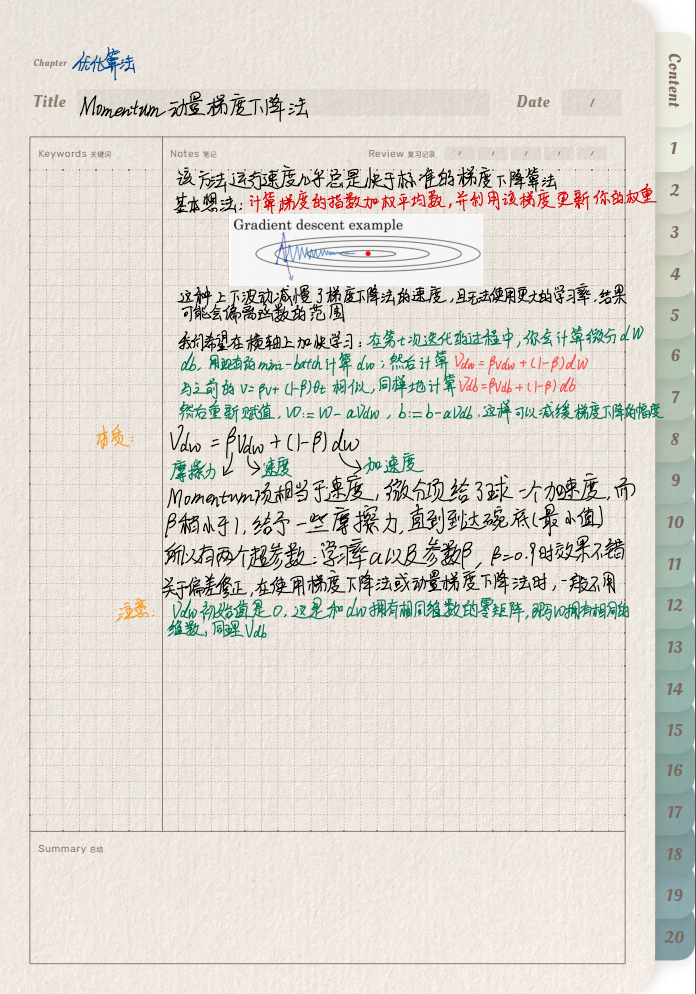 Chapter 优化算法
Title Momentum 动量梯度下降法 Date /
Content
Keywords 关键词 Notes 笔记 Review 复习记录 / / / / /
该方法运行速度几乎总是快于标准的梯度下降算法
基本想法：计算梯度的指数加权平均数，并利用该梯度更新你的权重
Gradient descent example
这种上下波动减慢了梯度下降法的速度，且无法使用更大的学习率，结果
可能会偏离函数的范围
我们希望在横轴上加快学习：在第t次迭代的过程中，你会计算微分dW
db，用现有的mini-batch计算dw；然后计算 Vdw = βVdw + (1-β)dW
与之前的 v=βv+(1-β)θt 相似，同样地计算 Vdb=βVdb+(1-β)db
然后重新赋值，W:=W-αVdw，b:=b-αVdb，这样可以减缓梯度下降的幅度
本质：
Vdw = βVdw + (1-β)dw
摩擦力 速度 加速度
Momentum项相当于速度，微分项给了球一个加速度，而
β稍小于1，给予一些摩擦力，直到到达碗底（最小值）
所以有两个超参数：学习率α以及参数β，β=0.9时效果不错
关于偏差修正，在使用梯度下降法或动量梯度下降法时，一般不用
注意：
Vdw初始值是0，这是和dw拥有相同维数的零矩阵，即与W拥有相同的
维数，同理Vdb
Summary 总结
1
2
3
4
5
6
7
8
9
10
11
12
13
14
15
16
17
18
19
20